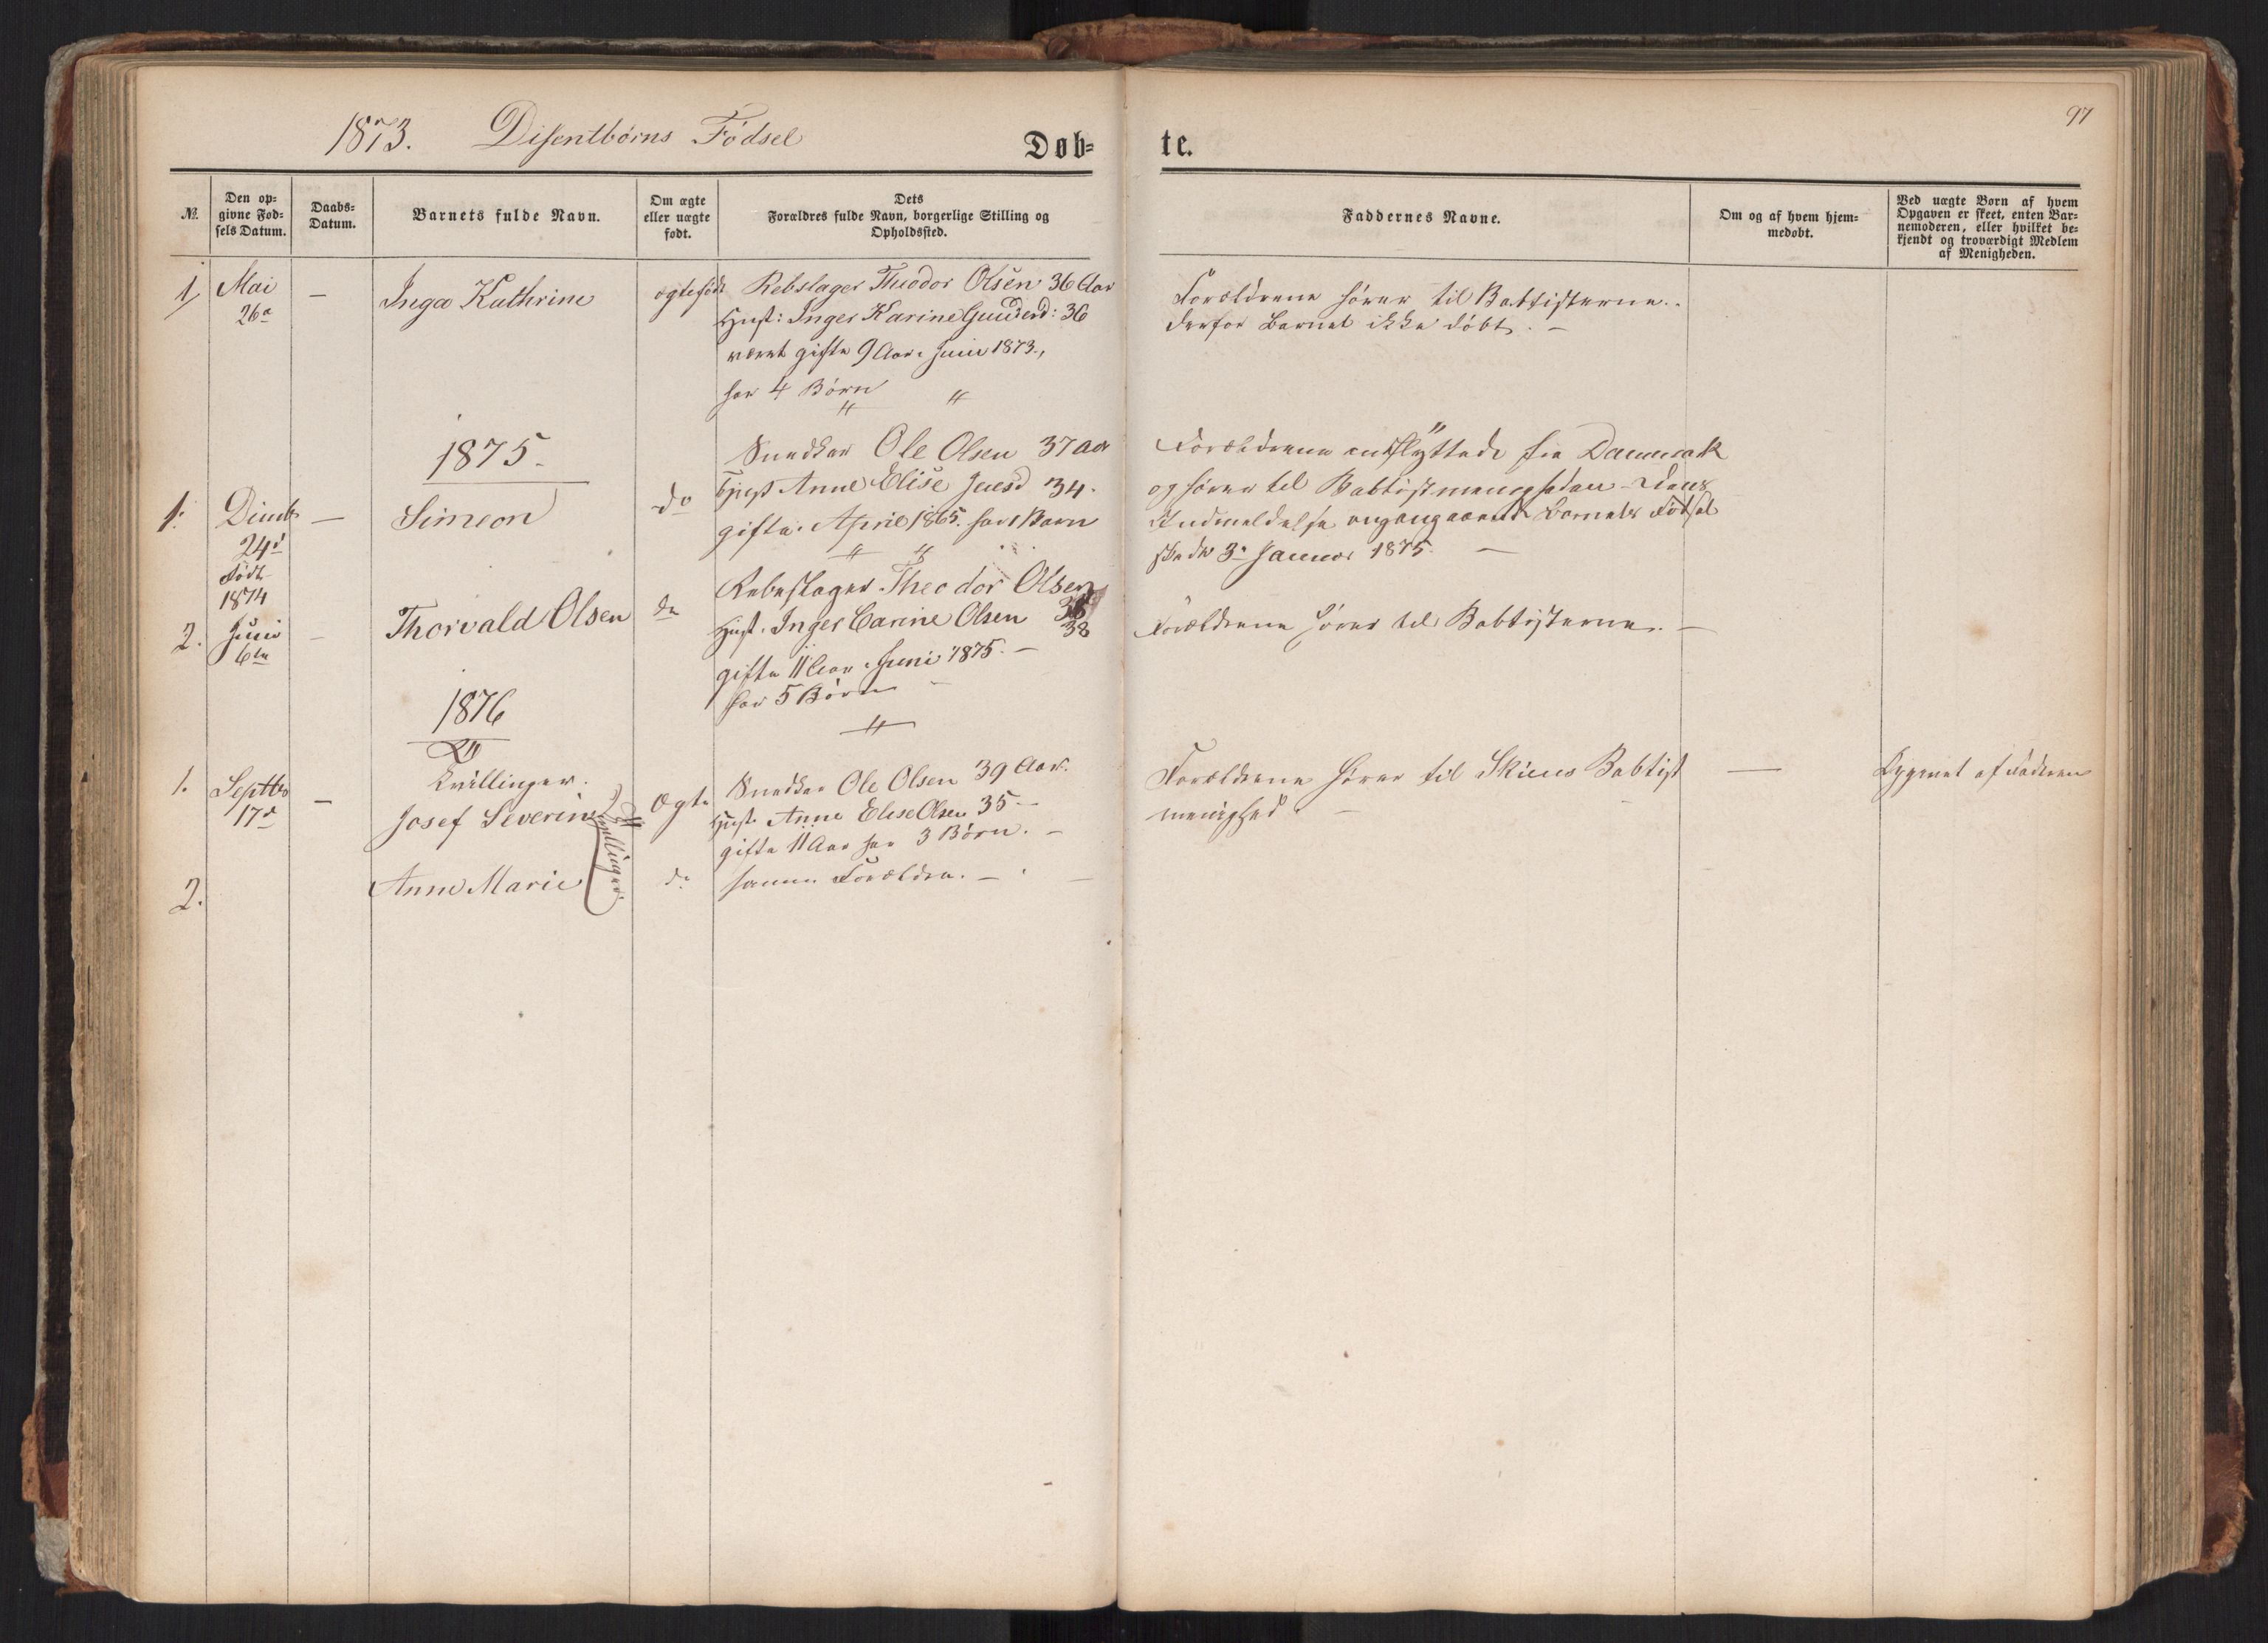 97
1873. Disentbörns Födsel
Døb= te.
No.
Den op=
givne Fød=
sels Datum.
Daabs=
Datum.
Barnets fulde Navn.
Om ægte
eller uægte
født.
Dets
Forældres fulde Navn, borgerlige Stilling og
Opholdssted.
Faddernes Navne.
Om og af hvem hjem=
medøbt.
Ved uægte Børn af hvem
Opgaven er skeet, enten Bar=
nemoderen, eller hvilket be=
kjendt og troværdigt Medlem
af Menigheden.
1, Mai — Inga Kathrine ægtefödt Rebslager Theodor Olsen 36 Aar
26
Hust: Inger Karine 36
været gifte 9 Aar Juni 1873.,
har 4 Börn
Forældrene hörer til Babtisterne.
derfor Barnet ikke döbt. —
1875.
1. — Simeon do Snedker Ole Olsen 37 Aar
24
Födt
1874
Hust Anne Elise 34.
gifte. April 1865. har Barn
Forældrene indflyttede fra Danmark
og hörer til Babtistmenigheden
Indmeldelse angaaende Barnets Födsel
skede 3 Januar 1875. —
2. Juni — Thorvald Olsen do Rebslager Theodor Olsen
6te
Hust. Inger Carine Olsen 38
gifte 11 Aar Juni 1875. —
har 5 Börn
Forældrene hörer til Babtisterne. —
1876
Tvillinger.
1. Septbr — Josef Severin Ægte Snedker Ole Olsen 39 Aar.
17d
Hust. Anne Elise Olsen 35 —
gifte 11 Aar har 3 Börn. —
Tvillinger
Forældrene hörer til Skiens Babtist — Opgivet af Faderen
menighed. —
2. Anne Marie do samme Forældre. —